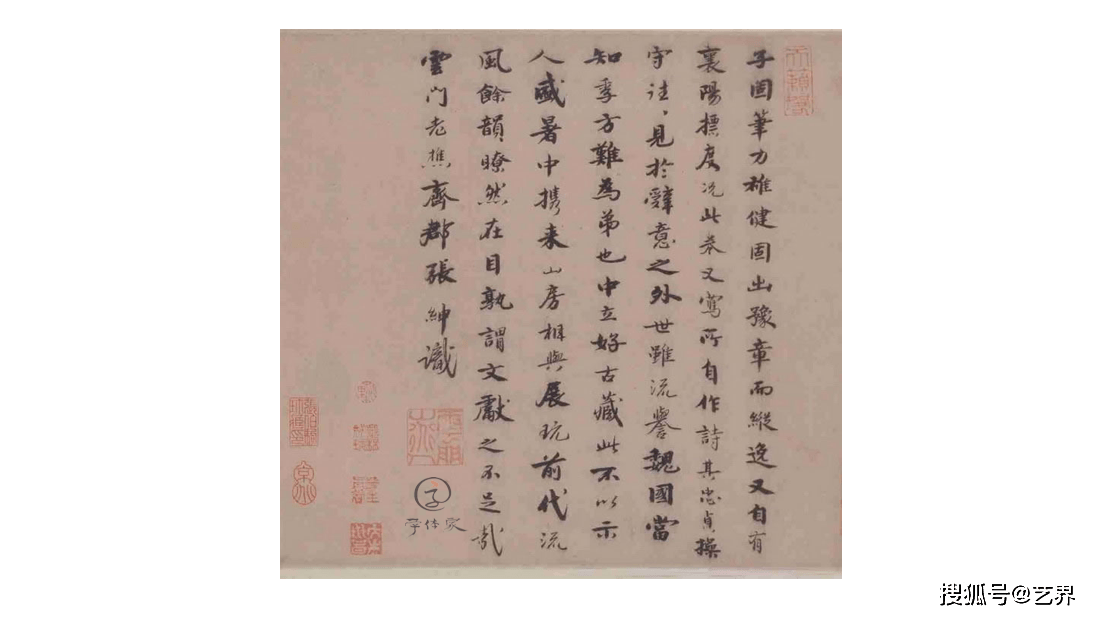 子固筆力雄健固出豫章而縱逸又自有
襄陽標度況此卷又寫所自作詩其忠貞操
守往、見於辭意之外世雖流譽魏國當
知季方難為弟也中立好古藏此不以示
人盛暑中携来山房相與展玩前代流
風餘韻瞭然在目孰謂文獻之不足哉
雲門老樵齊郡張紳識
字体家
搜狐号@艺界